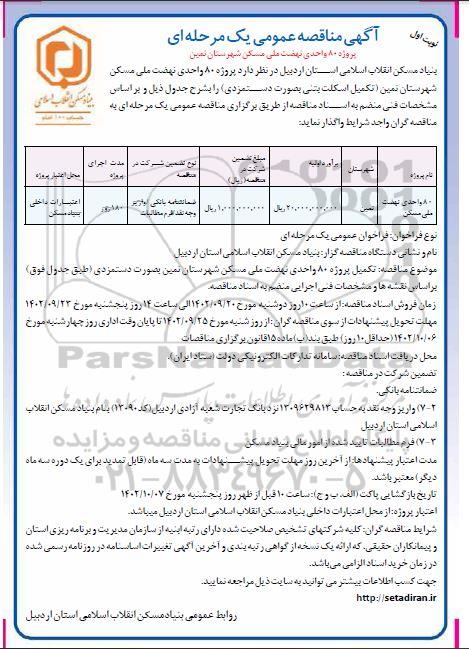 نوبت اول
آگهی مناقصه عمومی یک مرحله ای
پروژه ۸۰ واحدی نهضت ملی مسکن شهرستان نمین
بنیاد مسکن انقلاب اسلامی
بنیاد مسکن انقلاب اسلامی استان اردبیل در نظر دارد پروژه ۸۰ واحدی نهضت ملی مسکن
شهرستان نمین (تکمیل اسکلت بتنی بصورت دستمزدی) را بشرح جدول ذیل و بر اساس
مشخصات فنی منضم به اسناد مناقصه از طریق برگزاری مناقصه عمومی یک مرحله ای به
مناقصه گران واجد شرایط واگذار نماید:
نام پروژه شهرستان برآورد اولیه مبلغ تضمین شرکت در مناقصه (ریال) نوع تضمین شرکت در مناقصه مدت اجرای پروژه محل اعتبار پروژه
۸۰ واحدی نهضت ملی مسکن نمین ۲۰,۰۰۰,۰۰۰,۰۰۰ ریال ۱,۰۰۰,۰۰۰,۰۰۰ ریال ضمانتنامه بانکی /واریز وجه نقد/فرم مطالبات ۱۸۰ روز اعتبارات داخلی بنیاد مسکن
نوع فراخوان: فراخوان عمومی یک مرحله ای
نام و نشانی دستگاه مناقصه گزار: بنیاد مسکن انقلاب اسلامی استان اردبیل
موضوع مناقصه: تکمیل پروژه ۸۰ واحدی نهضت ملی مسکن شهرستان نمین بصورت دستمزدی (طبق جدول فوق)
بر اساس نقشه ها و مشخصات فنی اجرایی منضم به اسناد مناقصه
زمان فروش اسناد مناقصه: از ساعت ۱۰ روز دوشنبه مورخ ۱۴۰۲/۰۹/۲۰ الی ساعت ۱۴ روز پنجشنبه مورخ ۱۴۰۲/۰۹/۲۳
مهلت تحویل پیشنهادات از سوی مناقصه گران: از روز شنبه مورخ ۱۴۰۲/۰۹/۲۵ تا پایان وقت اداری روز چهارشنبه مورخ
۱۴۰۲/۱۰/۰۶ (حداقل ۱۰ روز) طبق بند (ب) ماده ۱۵ قانون برگزاری مناقصات
محل دریافت اسناد مناقصه: سامانه تدارکات الکترونیکی دولت (ستاد ایران).
تضمین شرکت در مناقصه:
ضمانتنامه بانکی.
۷-۲) واریز وجه نقد به حساب ۱۳۰۹۶۲۹۸۱۳ نزد بانک تجارت شعبه آزادی اردبیل (کد ۱۳۰۹۰) بنام بنیاد مسکن انقلاب
اسلامی استان اردبیل
۷-۳) فرم مطالبات تایید شده از امور مالی بنیاد مسکن
مدت اعتبار پیشنهادها: از آخرین روز مهلت تحویل پیشنهادات به مدت سه ماه (قابل تمدید برای یک دوره سه ماه
دیگر) معتبر باشد.
تاریخ بازگشایی پاکت (الف، ب و ج): ساعت ۱۰ قبل از ظهر روز پنجشنبه مورخ ۱۴۰۲/۱۰/۰۷
اعتبار پروژه: از محل اعتبارات داخلی بنیاد مسکن انقلاب اسلامی استان اردبیل میباشد.
شرایط مناقصه گران: کلیه شرکتهای تشخیص صلاحیت شده دارای رتبه ابنیه از سازمان مدیریت و برنامه ریزی استان و
پیمانکاران حقیقی، که ارائه یک نسخه از گواهی رتبه بندی و آخرین آگهی تغییرات اساسنامه در روزنامه رسمی شده
در زمان خرید اسناد الزامی می‌باشد.
جهت کسب اطلاعات بیشتر می توانید به سایت ذیل مراجعه نمایید.
http://setadiran.ir
روابط عمومی بنیاد مسکن انقلاب اسلامی استان اردبیل
ParsNamadData
۰۲۱-۸۸۳۴۹۶۷۰-۵